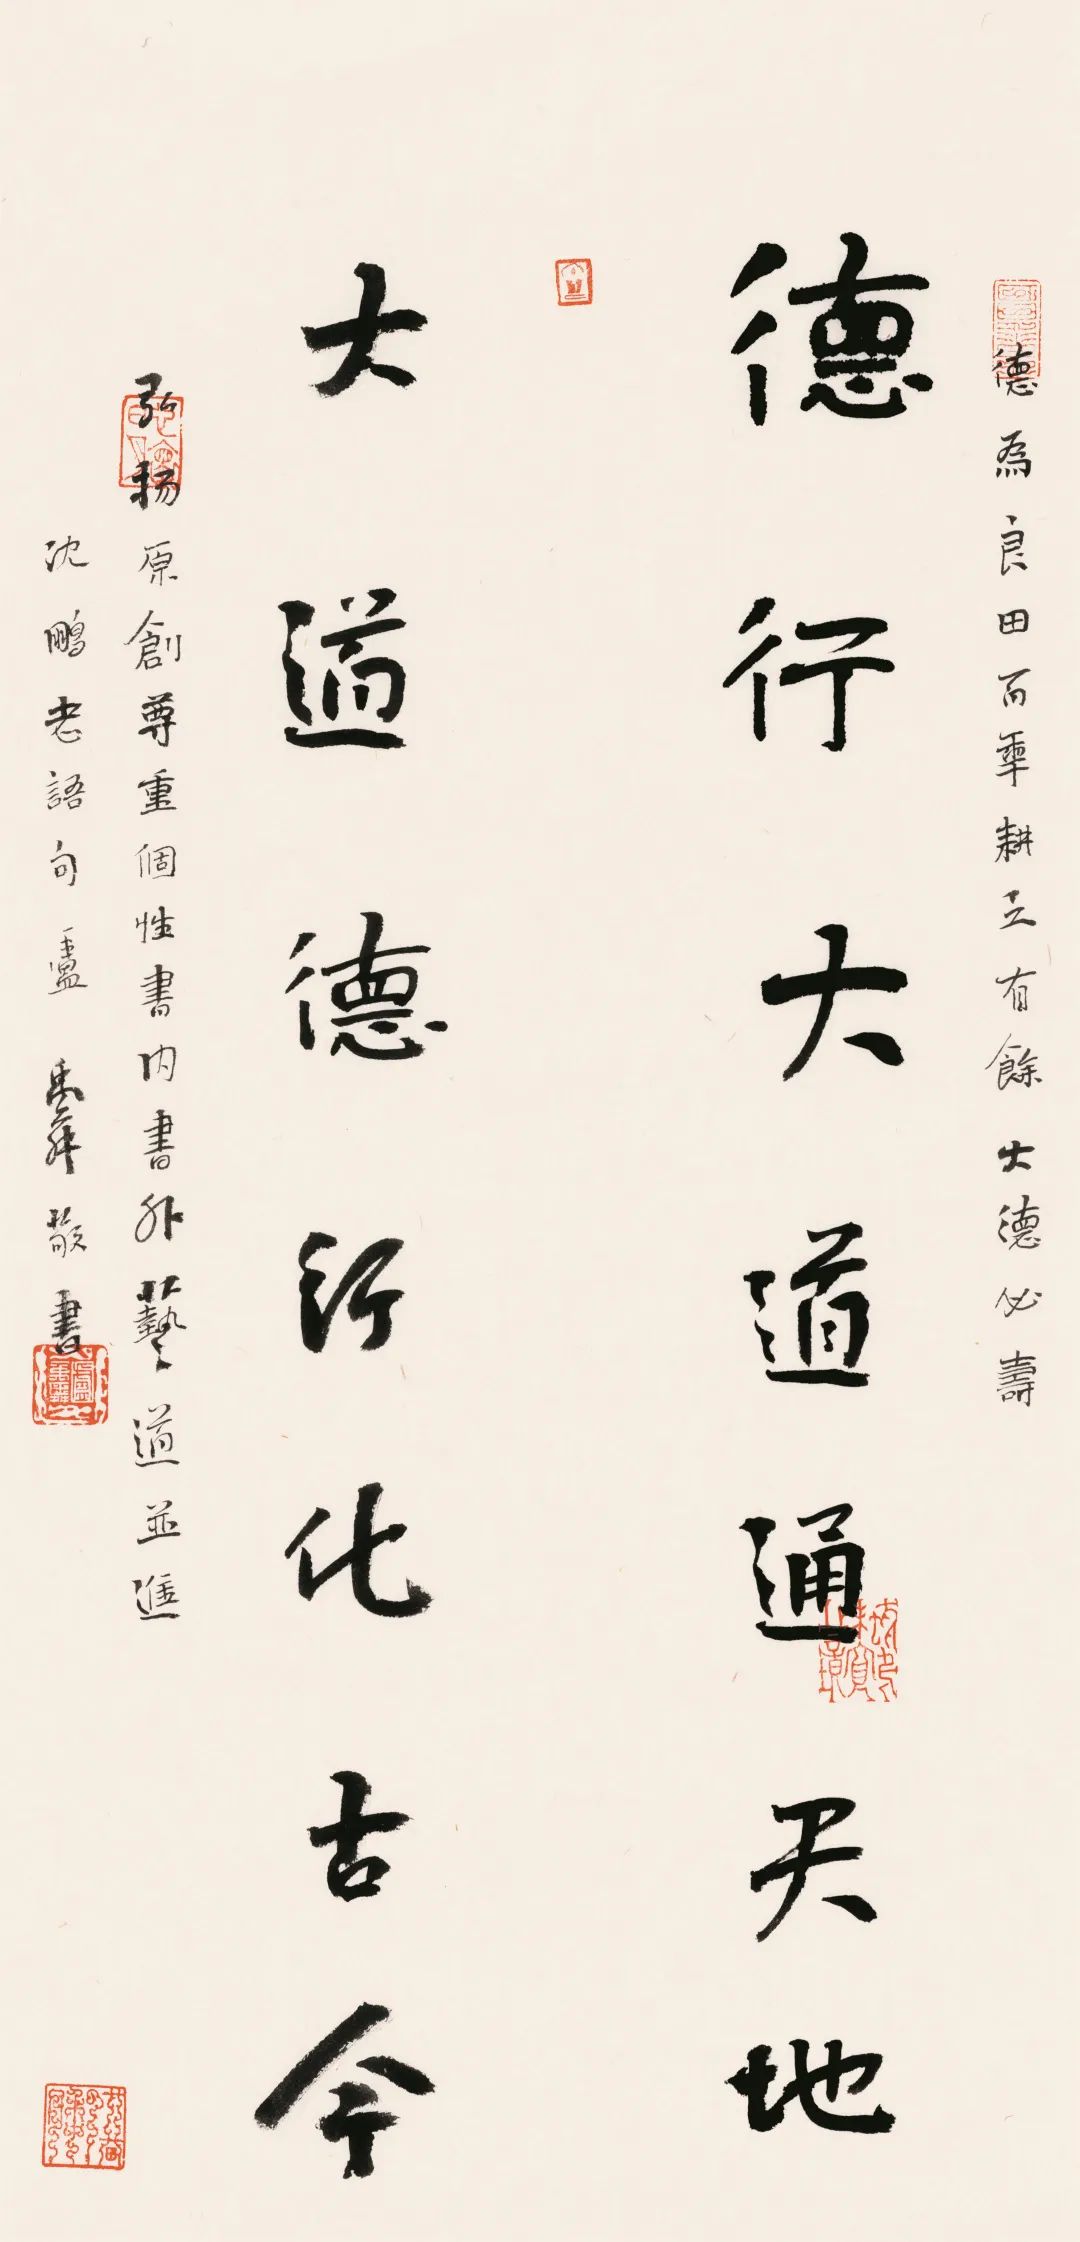 德為良田百年耕之有餘大德必壽
德行大道通天地
大道德行化古今
弘揚原創尊重個性書內書外藝道並進
沈鵬老語句盧禹舜敬書